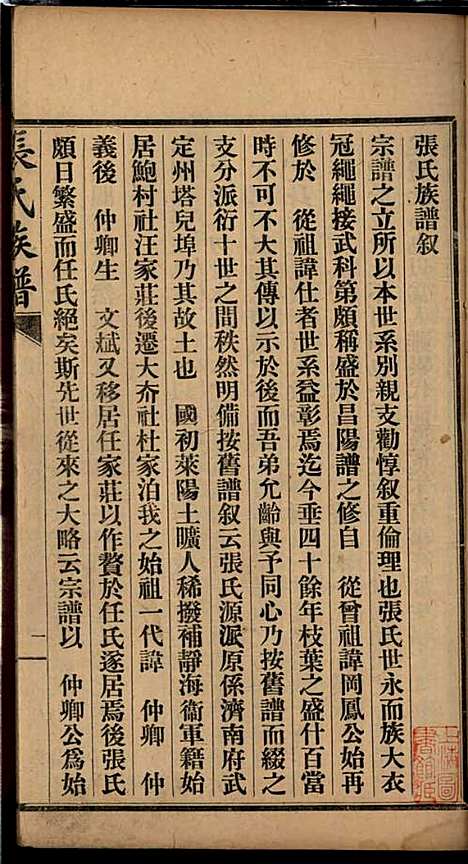 張氏族譜叙
宗譜之立所以本世系別親支勸惇叙重倫理也張氏世永而族大衣
冠繩繩接武科第頗稱盛於昌陽譜之修自 從曾祖諱岡鳳公始再
修於 從祖諱仕者世系益彰焉迄今垂四十餘年枝葉之盛什百當
時不可不大其傳以示於後而吾弟允齡與予同心乃按舊譜而綴之
支分派衍十世之間秩然明備按舊譜叙云張氏源派原係濟南府武
定州塔兒埠乃其故土也 國初萊陽土曠人稀撥補靜海衞軍籍始
居鮑村社汪家莊後遷大夼社杜家泊我之始祖一代諱 仲卿 仲
義後 仲卿生 文斌又移居任家莊以作贅於任氏遂居焉後張氏
頗日繁盛而任氏絕矣斯先世從來之大略云宗譜以 仲卿公為始
張氏族譜
一
上海圖
書館藏